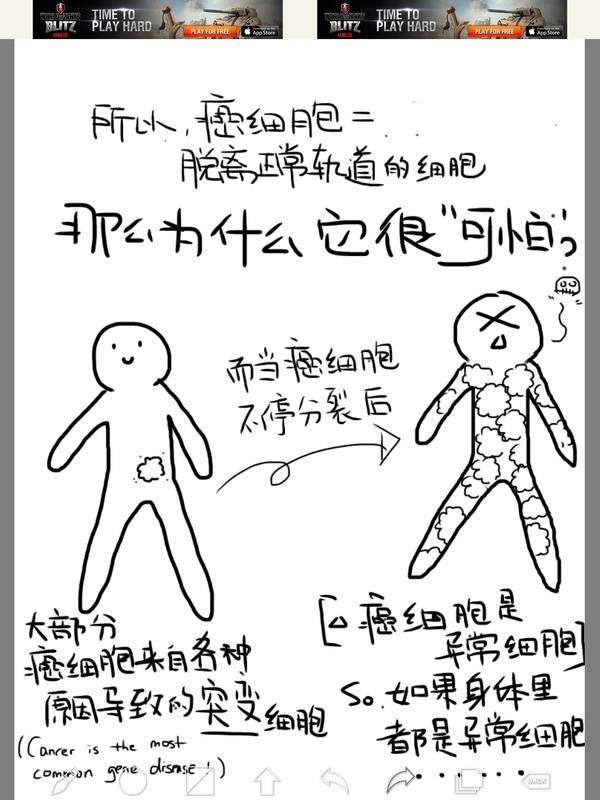 TIME TO
PLAY HARD
BLITZ
PLAY FOR FREE
App Store
TIME TO
PLAY HARD
BLITZ
PLAY FOR FREE
App Store
所以,癌细胞=
脱离正常轨道的细胞
那么为什么它很"可怕"?
而当癌细胞
不停分裂后
大部分
癌细胞来自各种
原因导致的突变细胞
((Cancer is the most
common gene disease!)
[∵癌细胞是
异常细胞]
So.如果身体里
都是异常细胞
.......
BACK